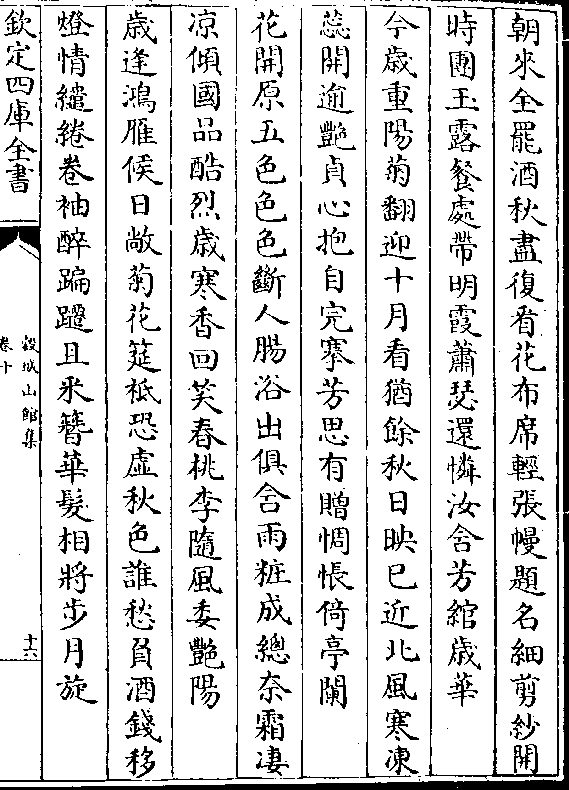 朝來全罷酒秋盡復看花布席輕張幔題名細剪紗開
時團玉露餐處帶明霞蕭瑟還憐汝含芳綰歳華
今歳重陽菊翻迎十月看猶餘秋日映已近北風寒凍
蕊開逾艷貞心抱自完搴芳思有贈惆悵倚亭闌
花開原五色色色斷人腸浴出俱含雨粧成總奈霜凄
凉傾國品酷烈歳寒香回笑春桃李隨風委艷陽
歳逢鴻雁候日敞菊花筵祗恐虚秋色誰愁負酒錢移
燈情繾綣卷袖醉蹁躚且采簪華髮相將步月旋
欽定四庫全書
穀城山館集
卷十
十六